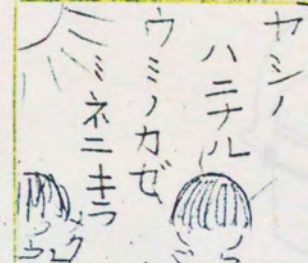 ヤシノ
ハニナル
ウミノカゼ
ミネニキラ